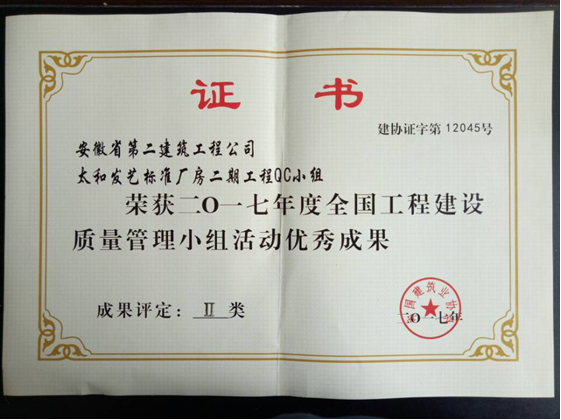 证 书
建协证字第 12045号
安徽省第二建筑工程公司
太和发艺标准厂房二期工程QC小组
荣获二O一七年度全国工程建设
质量管理小组活动优秀成果
成果评定： II 类
中国建筑业协会
二O一七年